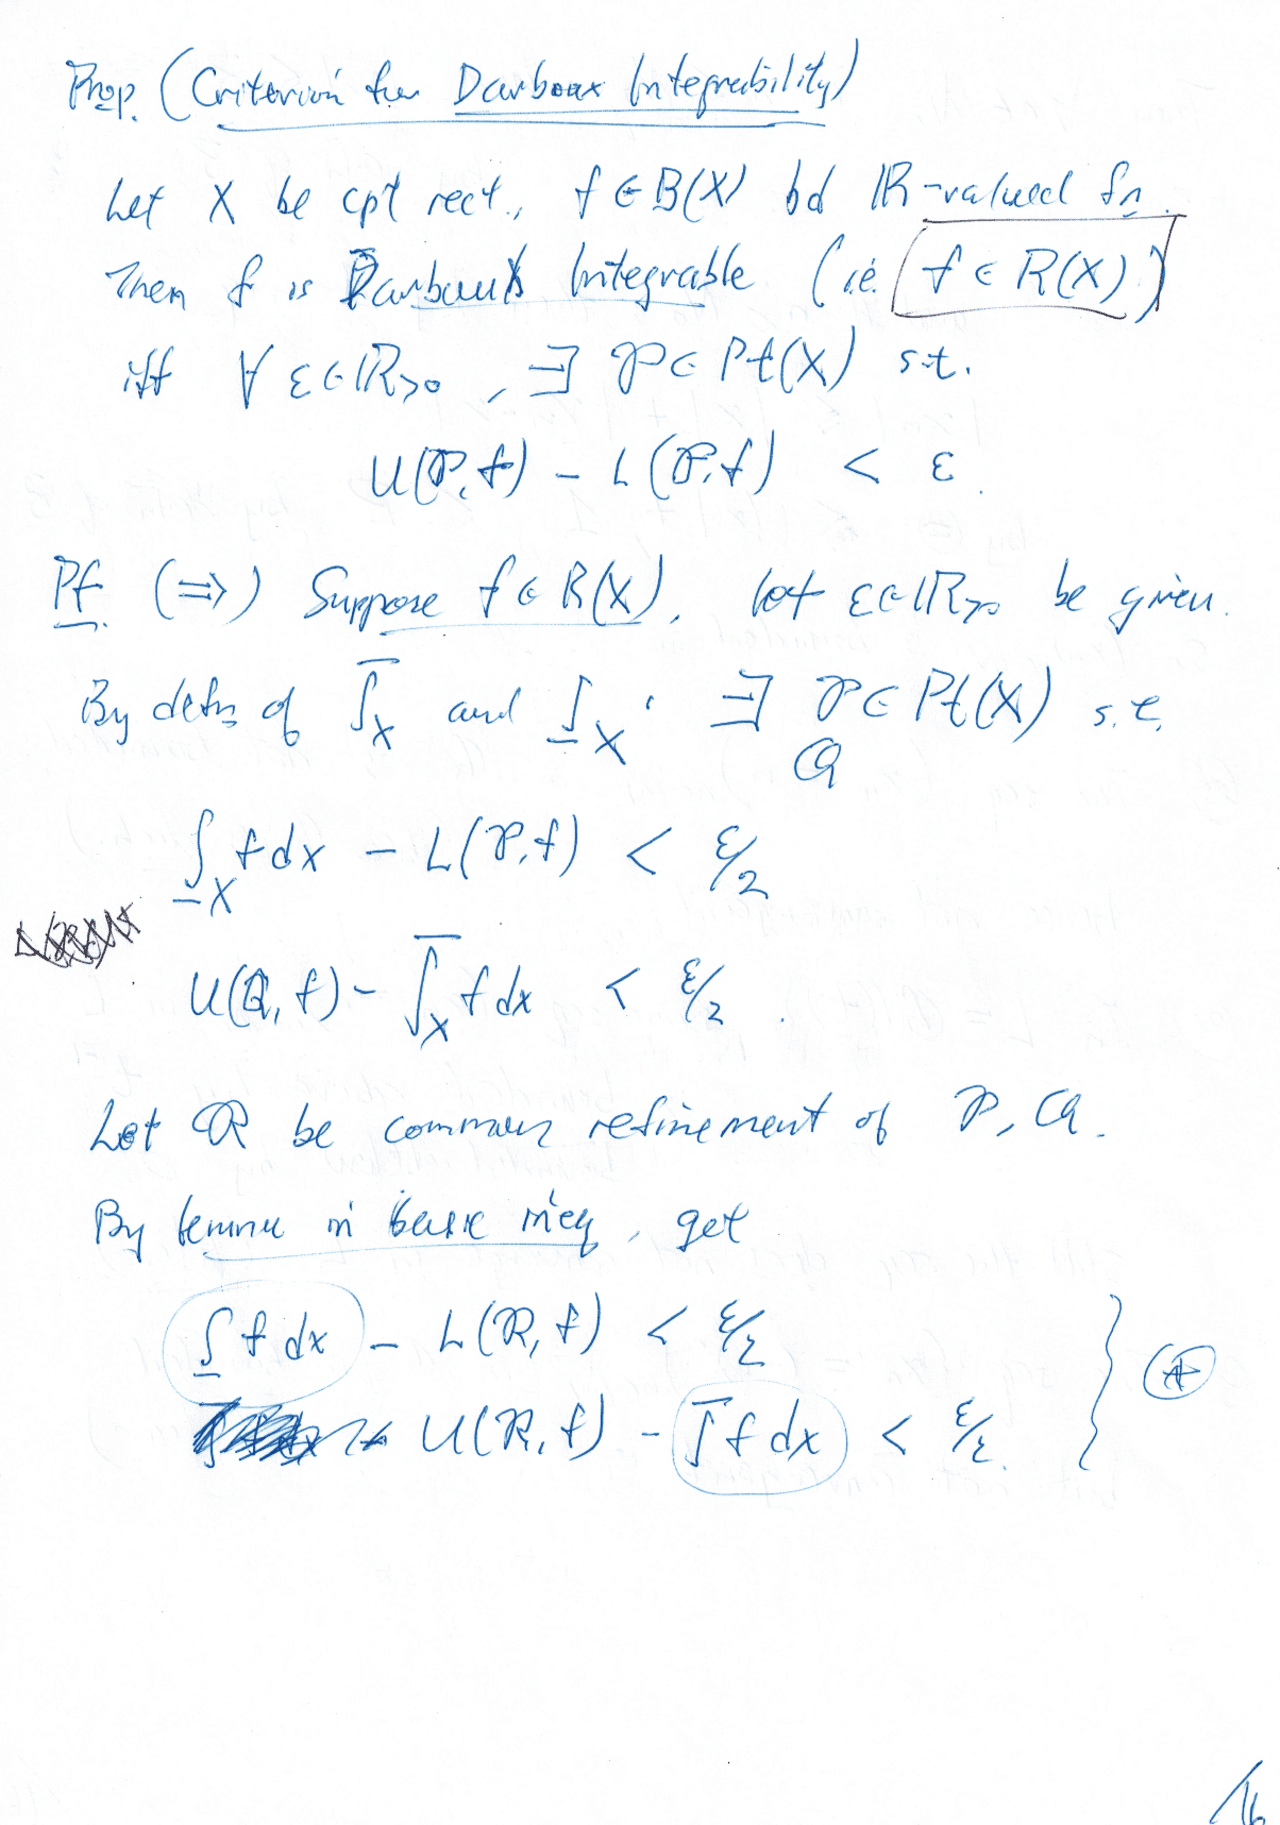 Prop. (Criterion for Darboux Integrability)
Let X be cpt rect., f ∈ B(X) bd ℝ-valued fn.
Then f is Darboux Integrable (i.e. f ∈ R(X))
iff ∀ ε ∈ ℝ>0, ∃ 𝒫 ∈ Pt(X) s.t.
U(𝒫, f) - L(𝒫, f) < ε.
Pf. (⇒) Suppose f ∈ R(X). Let ε ∈ ℝ>0 be given.
By defns of ∫̅_X and ∫̲_X, ∃ 𝒫, 𝒬 ∈ Pt(X) s.t.
∫̲_X f dx - L(𝒫, f) < ε/2
U(𝒬, f) - ∫̅_X f dx < ε/2.
Let ℛ be common refinement of 𝒫, 𝒬.
By lemma in basic ineq, get
∫̲ f dx - L(ℛ, f) < ε/2
U(ℛ, f) - ∫̅ f dx < ε/2.
(*)
16